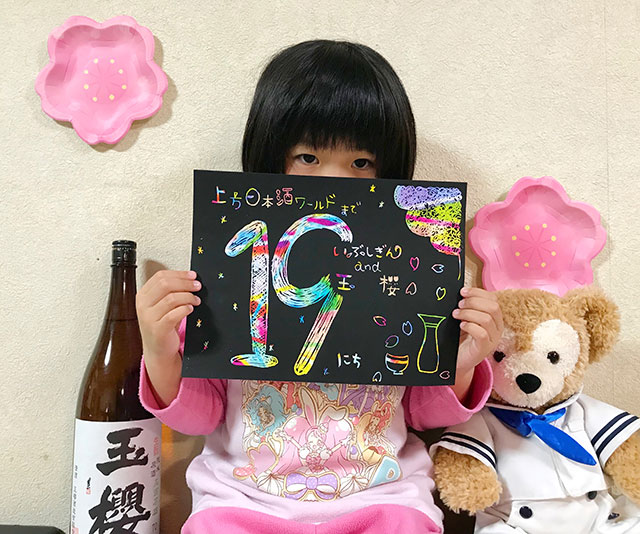 上方日本酒ワールドまで
19
いぶしぎん
and
玉櫻
にち
玉櫻